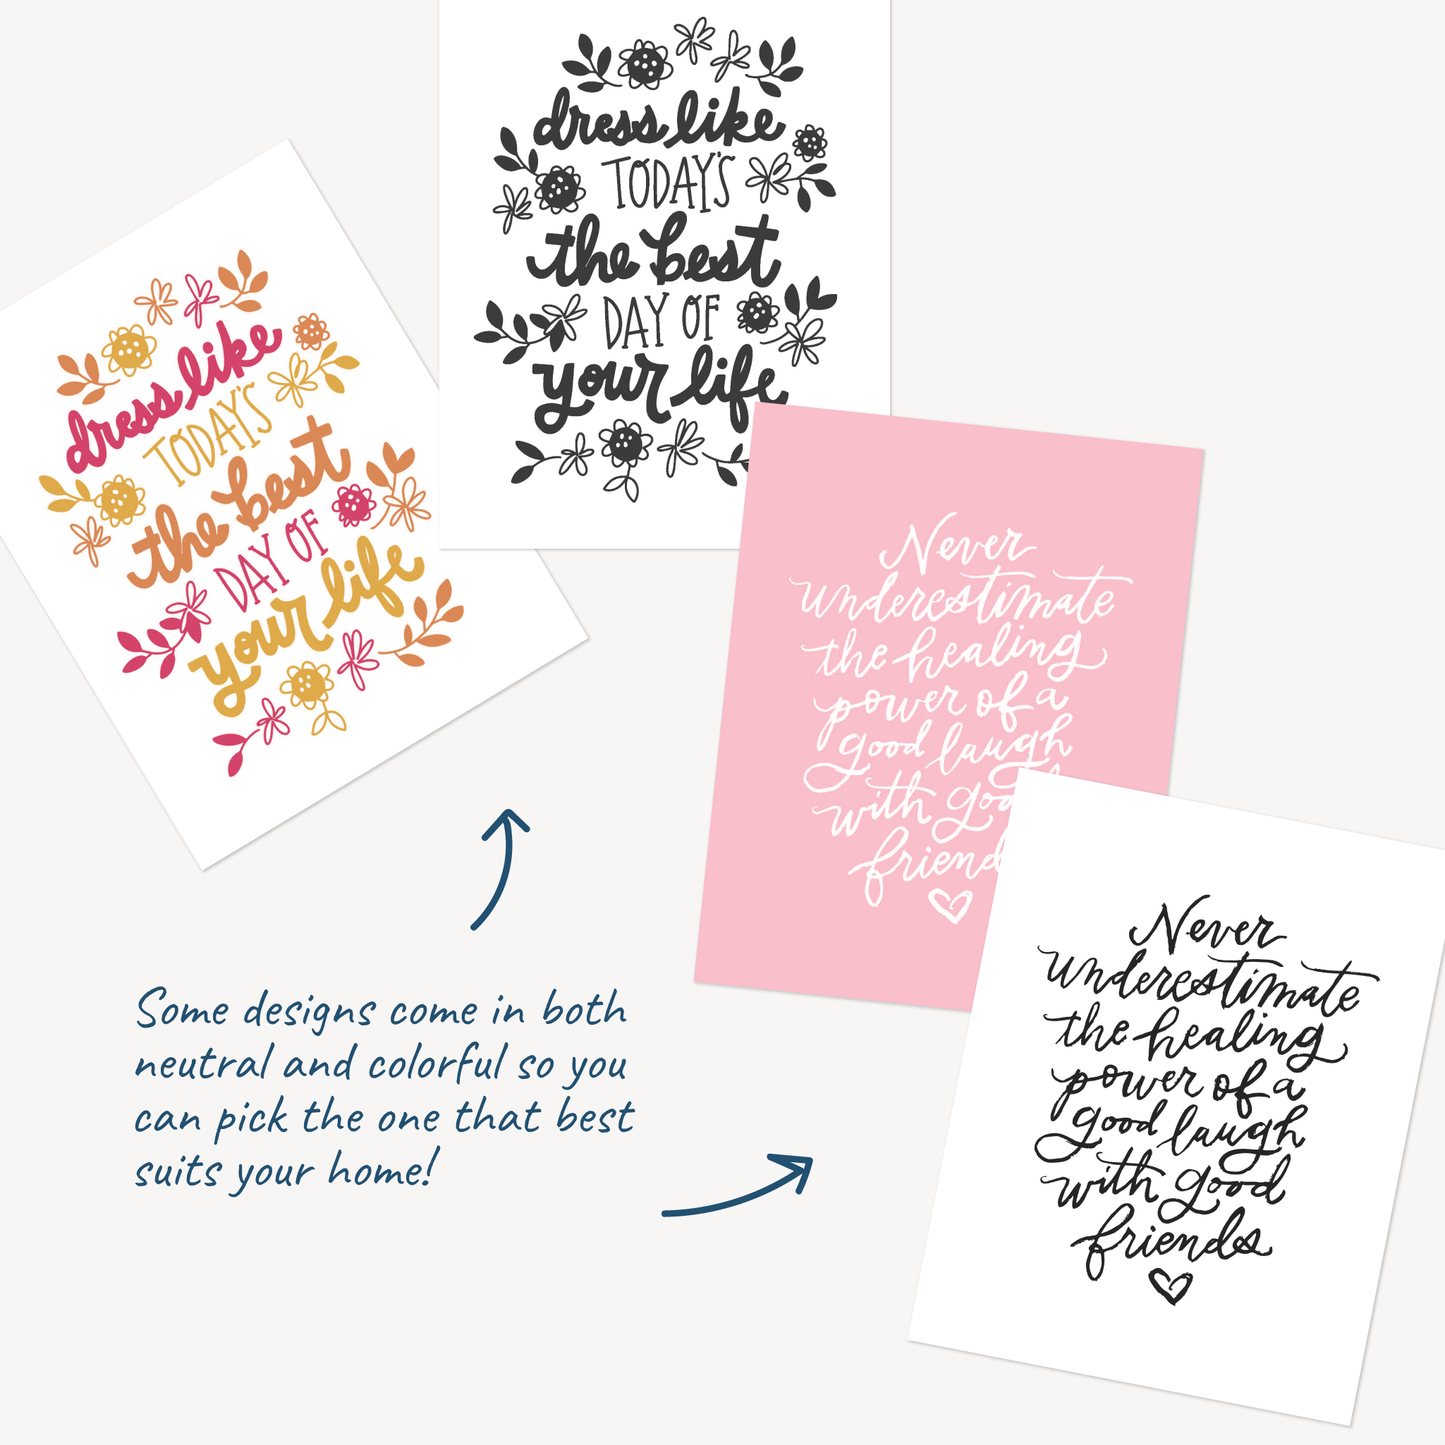 dress like
TODAY'S
the best
DAY OF
your life
dress like
TODAY'S
the best
DAY OF
your life
Never
underestimate
the healing
power of a
good laugh
with
friend
Never
underestimate
the healing
power of a
good laugh
with good
friends
Some designs come in both
neutral and colorful so you
can pick the one that best
suits your home!